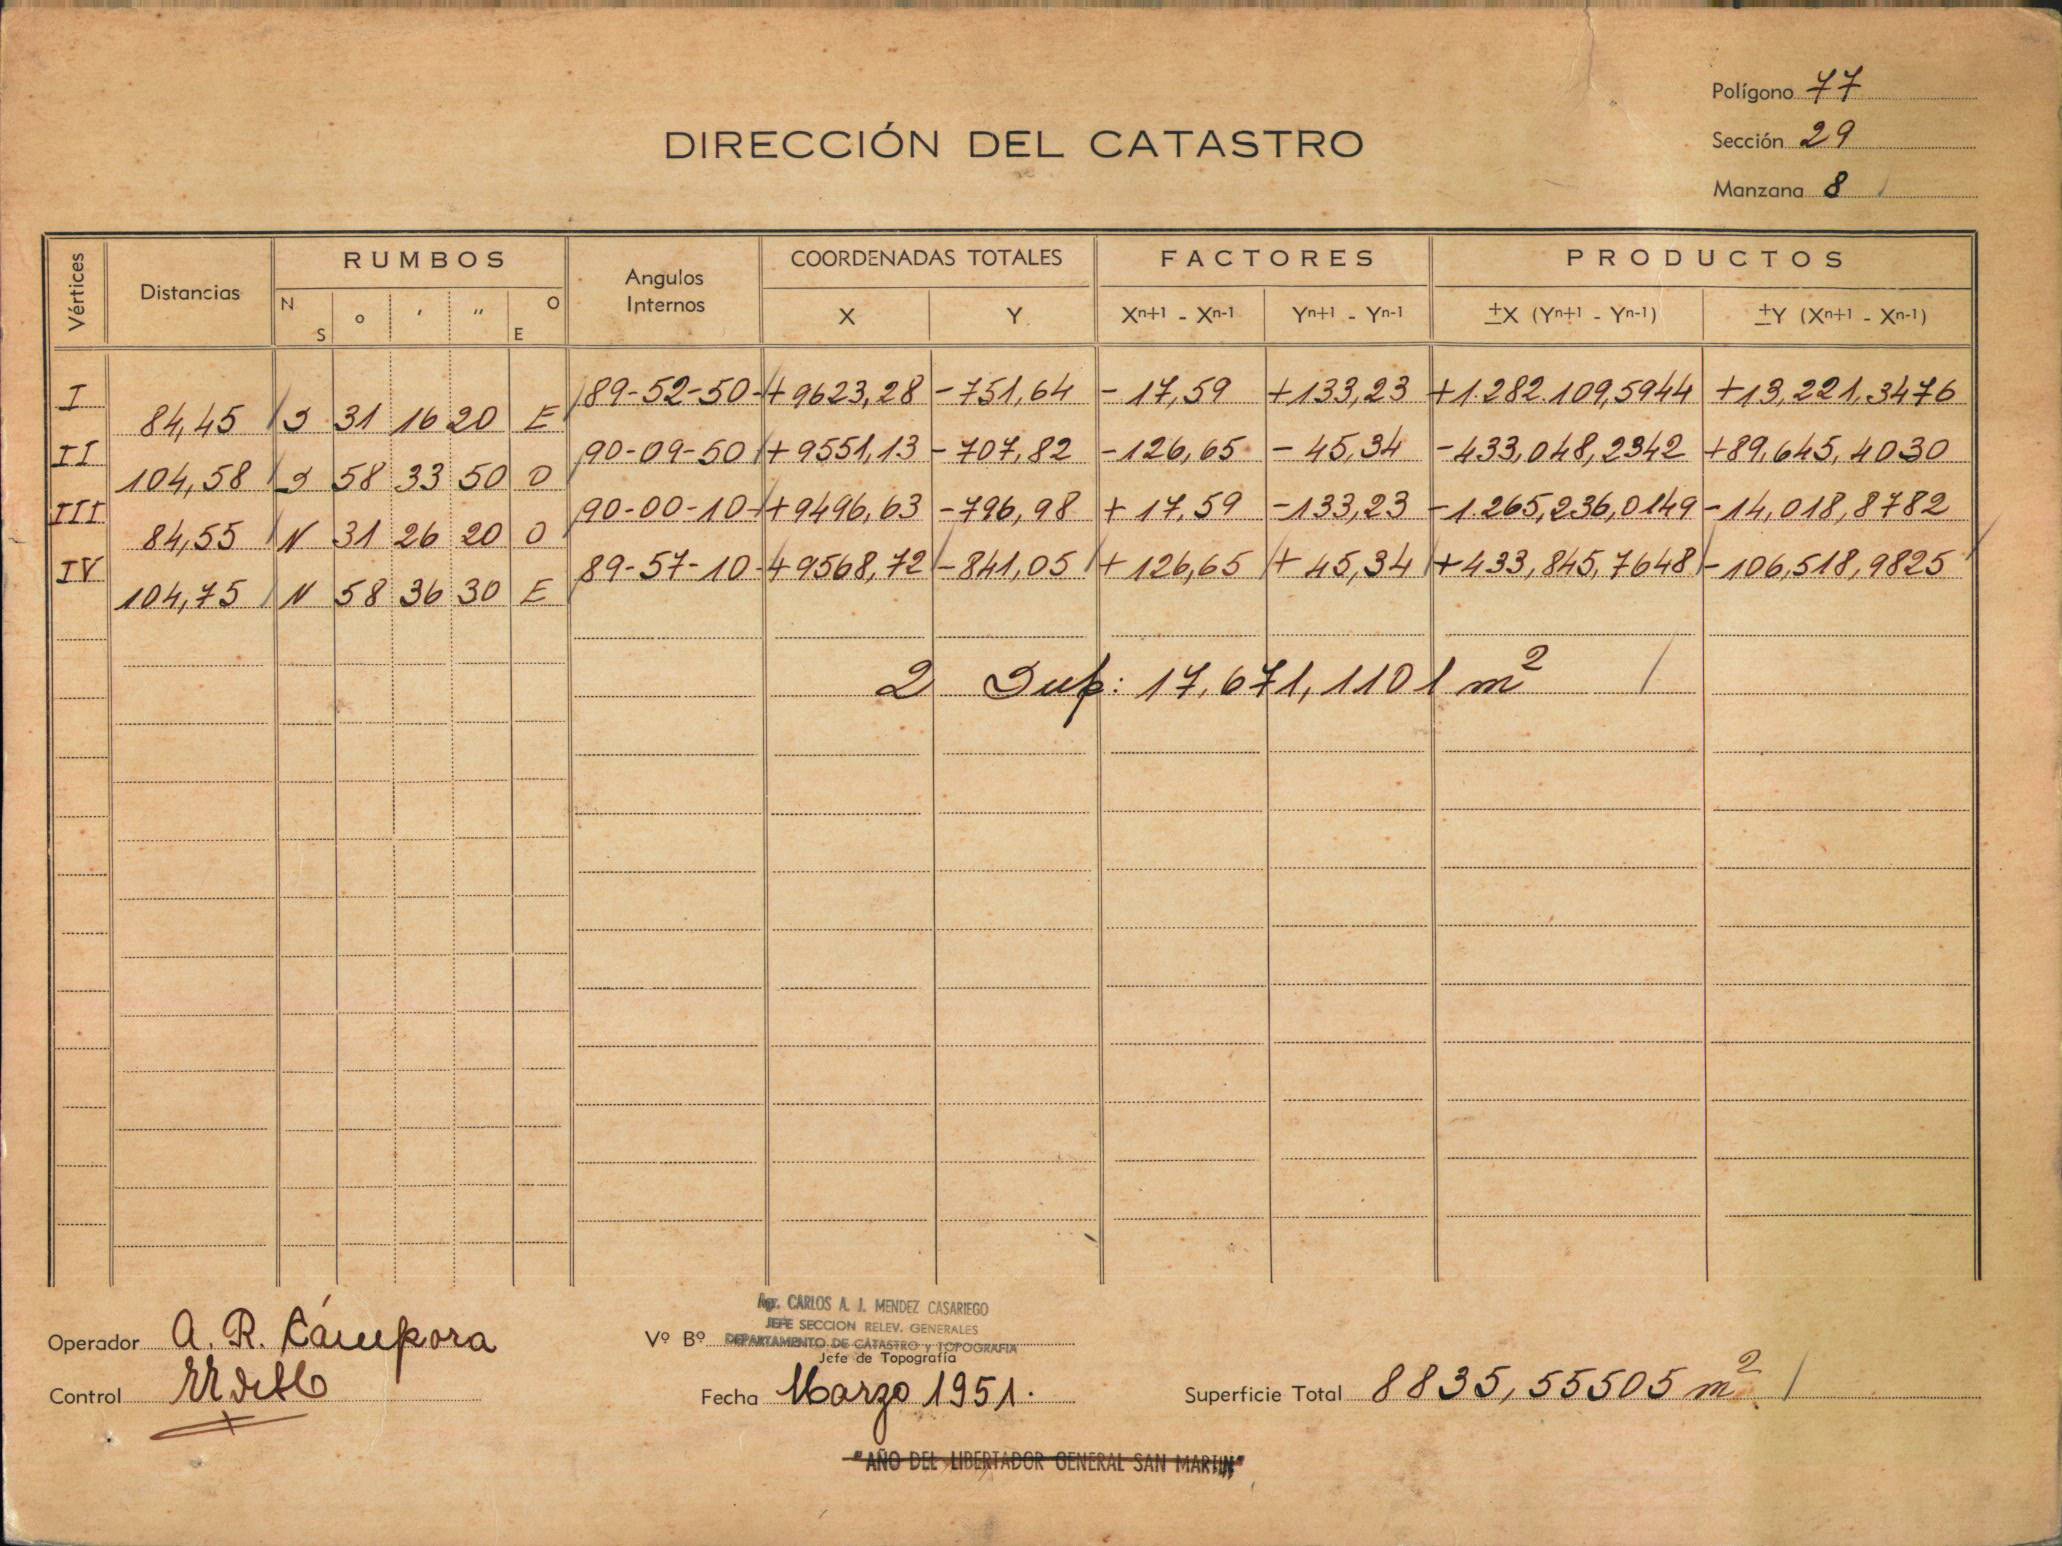 Polígono 77
DIRECCIÓN DEL CATASTRO
Sección 29
Manzana 8
Vértices Distancias RUMBOS Angulos Internos COORDENADAS TOTALES FACTORES PRODUCTOS
N S o ' " O E X Y Xn+1 - Xn-1 Yn+1 - Yn-1 ±X (Yn+1 - Yn-1) ±Y (Xn+1 - Xn-1)
I 89-52-50 +9623,28 -751,64 -17,59 +133,23 +1.282.109,5944 +13,221,3476
84,45 S 31 16 20 E
II 90-09-50 +9551,13 -707,82 -126,65 -45,34 -433,048,2342 +89,645,4030
104,58 S 58 33 50 O
III 90-00-10 +9496,63 -796,98 +17,59 -133,23 -1.265,236,0149 -14,018,8782
84,55 N 31 26 20 O
IV 89-57-10 +9568,72 -841,05 +126,65 +45,34 +433,845,7648 -106,518,9825
104,75 N 58 36 30 E
2 Sup: 17,671,1101 m²
Agr. CARLOS A. J. MENDEZ CASARIEGO
JEFE SECCION RELEV. GENERALES
Operador A. R. Cámpora Vº Bº DEPARTAMENTO DE CATASTRO y TOPOGRAFIA
Jefe de Topografía
Control Fecha Marzo 1951. Superficie Total 8835,55505 m²
"AÑO DEL LIBERTADOR GENERAL SAN MARTIN"